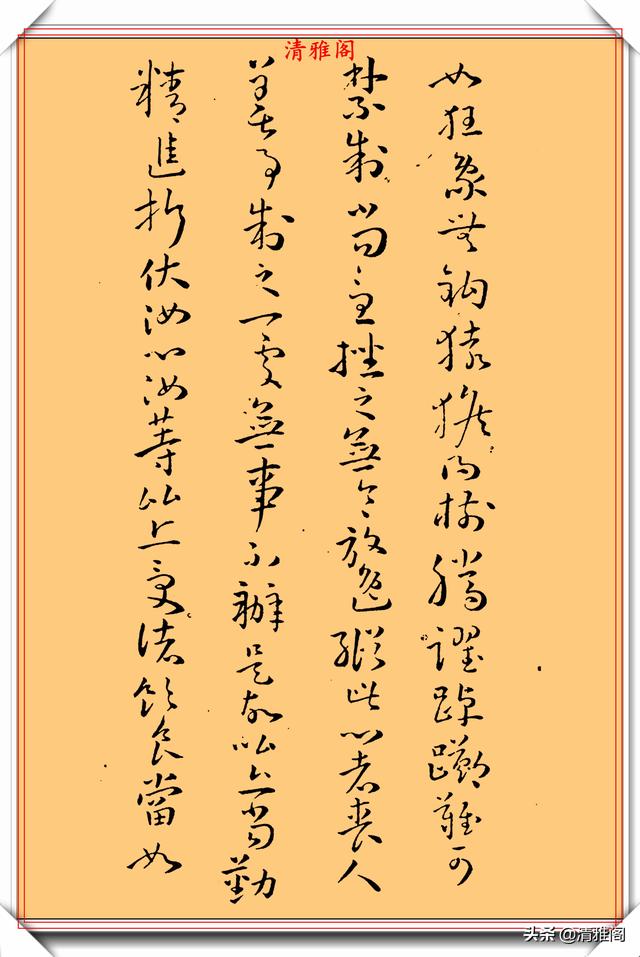 清雅阁
如狂象無鈎猿猴得樹騰躍踔躑難可
禁制當急挫之無令放逸縱此心者喪人
善事制之一處無事不辦是故比丘當勤
精進折伏汝心汝等比丘受諸飲食當如
头条 @清雅阁